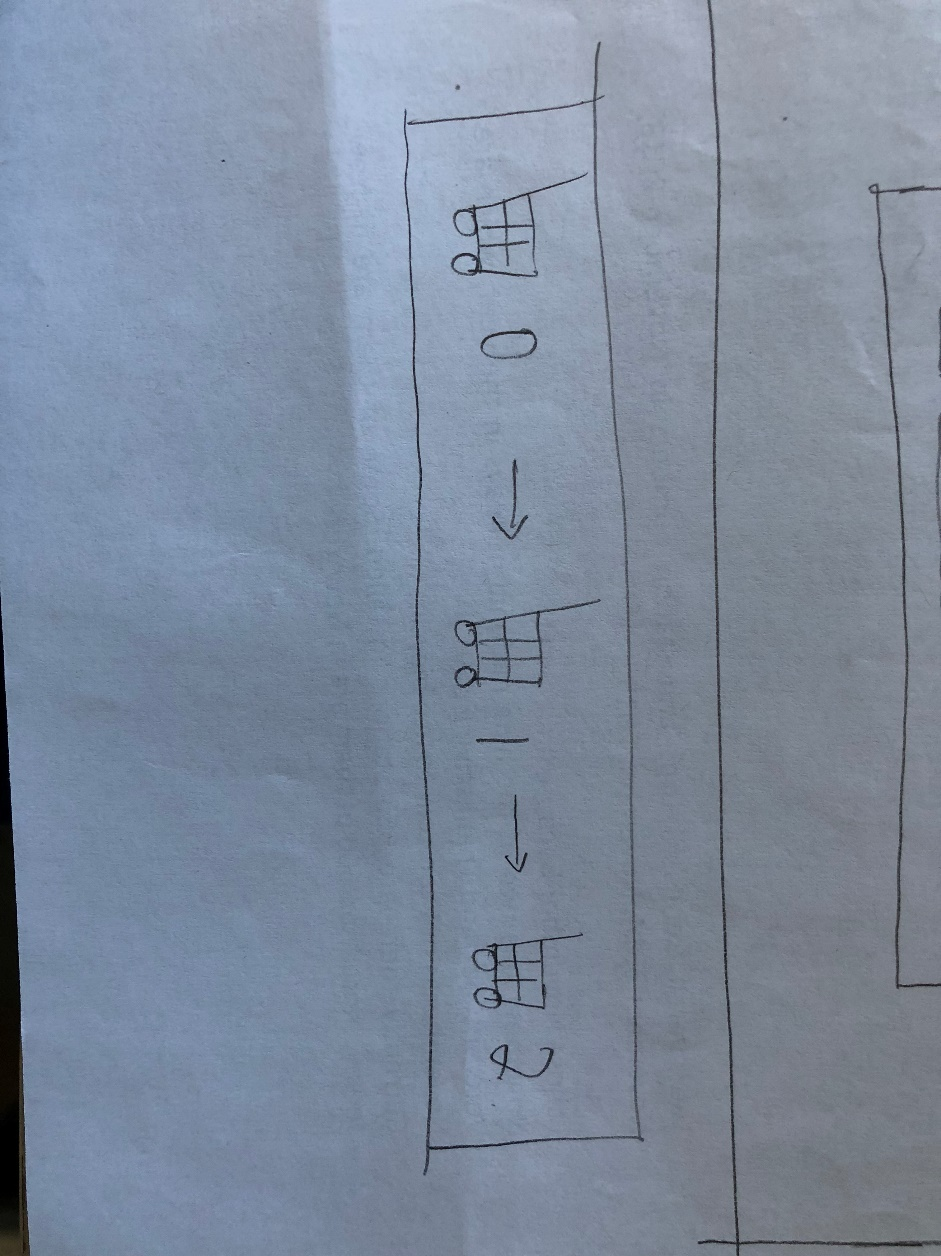 0 → 1 → 2